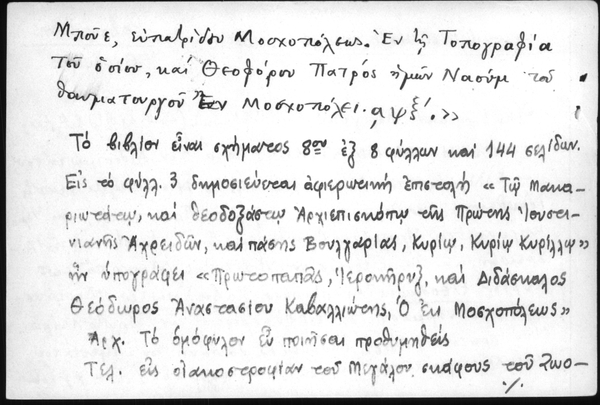 Μποῦε, εὐπατρίδου Μοσχοπόλεως. Ἐν τῇ Τοπογραφίᾳ
τοῦ ὁσίου, καὶ Θεοφόρου Πατρός ἡμῶν Ναούμ τοῦ
θαυματουργοῦ Ἐν Μοσχοπόλει. ͵αψξ΄.»
Τὸ βιβλίον εἶναι σχήματος 8ου ἐξ 8 φύλλων καὶ 144 σελίδων.
Εἰς τὸ φύλλ. 3 δημοσιεύεται ἀφιερωτικὴ ἐπιστολή «Τῷ Μακα-
ριωτάτῳ, καὶ θεοδοξάστῳ Ἀρχιεπισκόπῳ τῆς Πρώτης Ἰουστι-
νιανῆς Ἀχρειδῶν, καὶ πάσης Βουλγαρίας, Κυρίῳ, Κυρίῳ Κυρίλλῳ»
ἣν ὑπογράφει «Πρωτοπαπᾶς, Ἱεροκῆρυξ, καὶ Διδάσκαλος
Θεόδωρος Ἀναστασίου Καβαλλιώτης, Ὁ ἐκ Μοσχοπόλεως»
Ἀρχ. Τὸ ὁμόφυλον εὖ ποιῆσαι προθυμηθείς
Τελ. εἰς οἰακοστροφίαν τοῦ Μεγάλου σκάφους τοῦ Ζωο-
./.